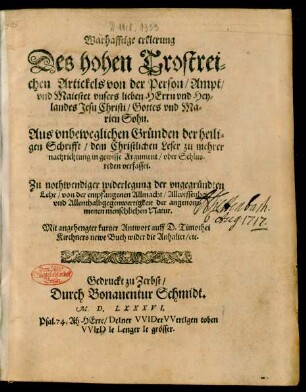 Warhafftige erklerung
Des hohen Trostrei-
chen Artickels von der Person / Ampt /
vnd Maiestet vnsers lieben HErrn vnd Hey-
landes Jesu Christi / Gottes vnd Ma-
rien Sohn.
Aus vnbeweglichen Gründen der heili-
gen Schrifft / dem Christlichen Leser zu mehrer
nachrichtung in gewisse Argument / oder Schlus-
reden verfasset.
Zu nothwendiger widerlegung der vngegründten
Lehr / von der empfangenen Allmacht /
vnd Allenthalbgegenwertigkeit der angenom-
menen menschlichen Natur.
Mit angehengter kurtzer Antwort auff D. Timothei
Kirchners newe Buch wider die Anhalter / etc.
Gedruckt zu Zerbst /
Durch Bonauentur Schmidt.
M. D. LXXXVI.
Psal. 74. Ah HErr / Deiner VVIDerVVertIgen toben
VVIrD je lenger je grösser.